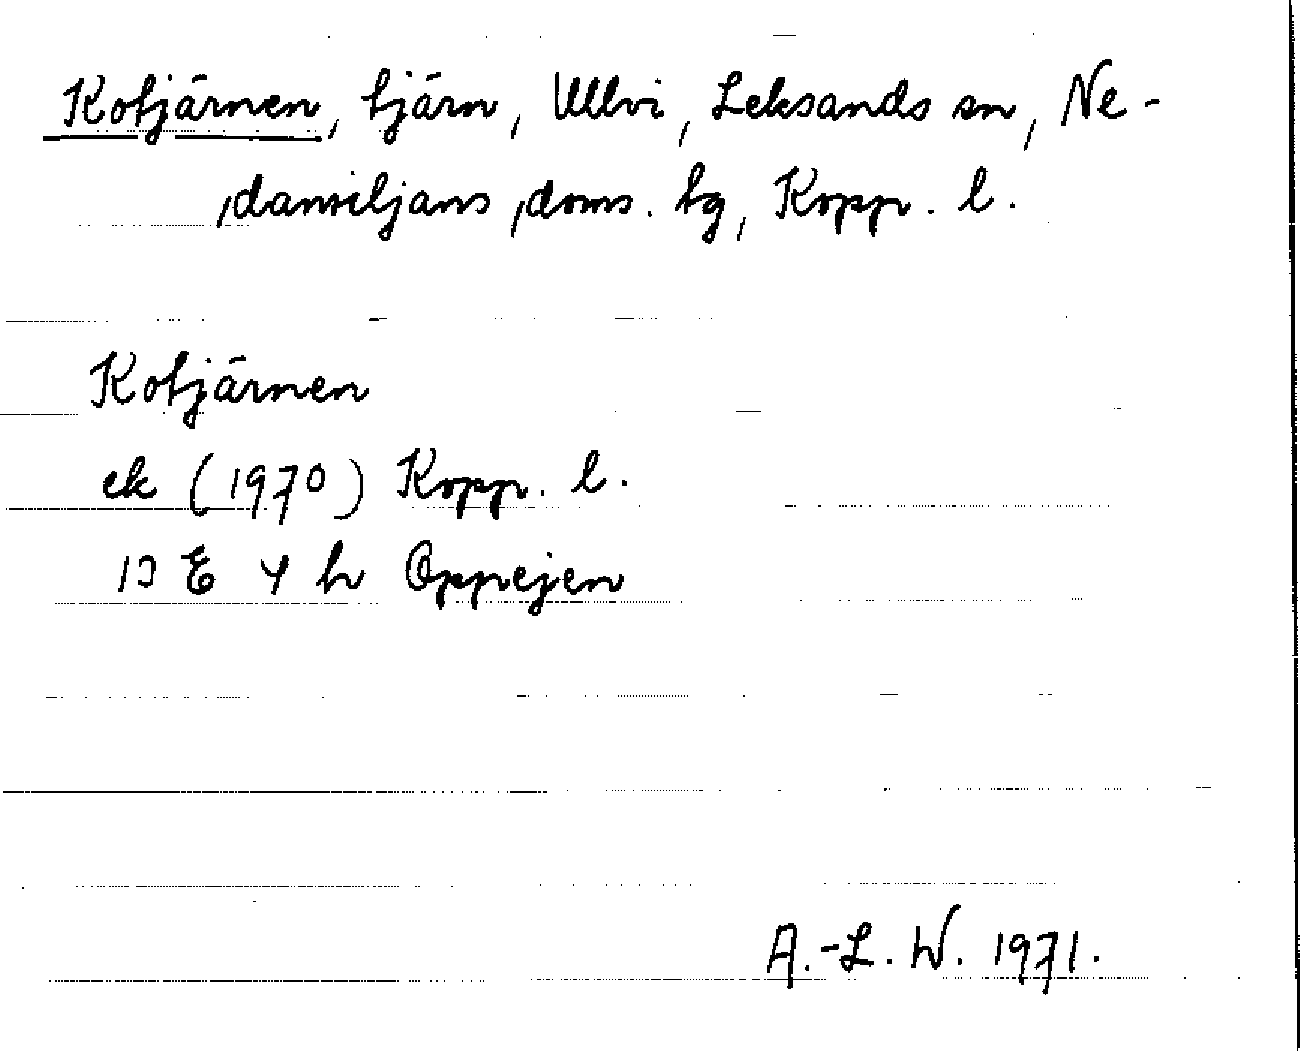 Kotjärnen, tjärn, Ullvi, Leksands sn, Ne-
dansiljans doms. tg, Kopp. l.
Kotjärnen
ek (1970) Kopp. l.
13 E 4 h Oppejen
A.-L. W. 1971.